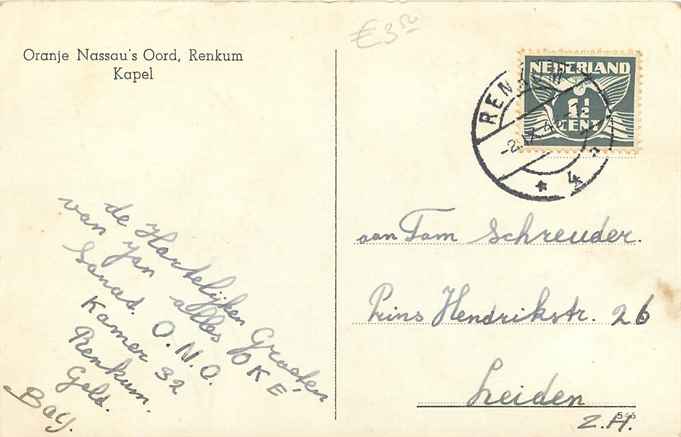 €3.50
Oranje Nassau's Oord, Renkum
Kapel
NEDERLAND
1½
CENT
RENKUM
4
de Hartelijken Groeten
van Jan alles OKE
Sanat. O.N.O.
Kamer 32
Renkum.
Geld.
Bay.
aan Tam Schreuder.
Prins Hendrikstr. 26
Leiden
Z.H.